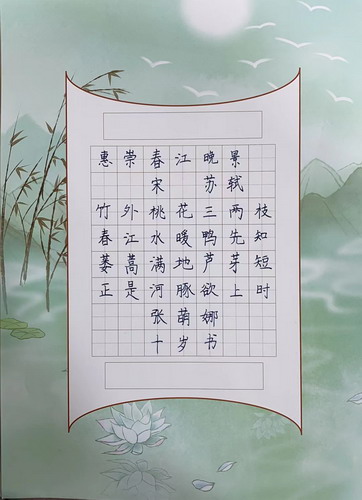 惠崇春江晚景
宋 苏轼
竹外桃花三两枝
春江水暖鸭先知
蒌蒿满地芦芽短
正是河豚欲上时
张萌娜
十岁书